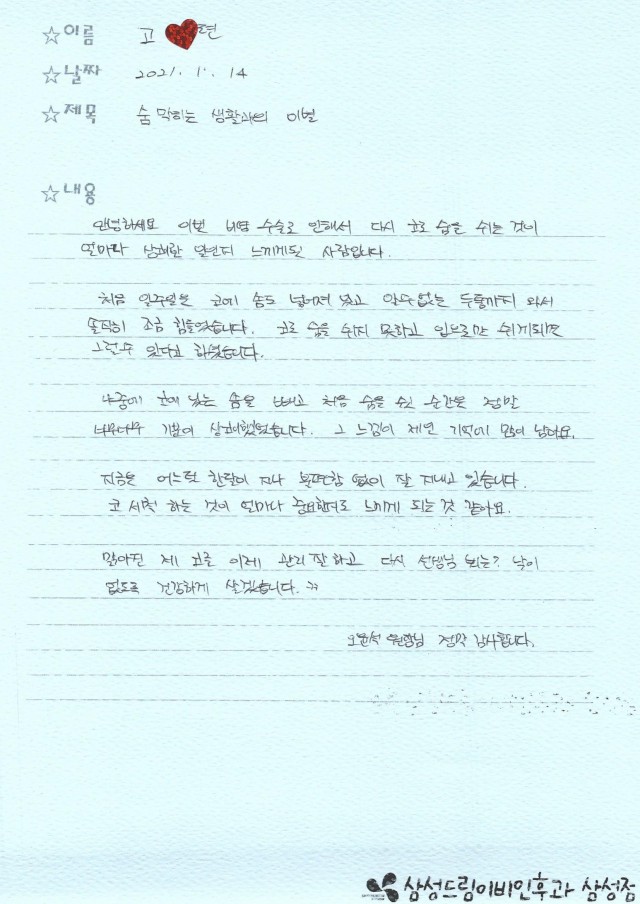 ☆이름 고 현
☆날짜 2021. 11. 14
☆제목 숨 막히는 생활과의 이별
☆내용
안녕하세요 이번 비염 수술로 인해서 다시 코로 숨을 쉬는 것이
얼마나 상쾌한 일인지 느끼게된 사람입니다.
처음 일주일은 코에 솜도 넣어져 있고 알수없는 두통까지 와서
솔직히 조금 힘들었습니다. 코로 숨을 쉬지 못하고 입으로만 쉬게되면
그럴수 있다고 하셨습니다.
나중에 코에 있는 솜을 빼고 처음 숨을 쉬는 순간은 정말
너무너무 기분이 상쾌했었습니다. 그 느낌이 제일 기억에 많이 남아요.
지금은 어느덧 한달이 지나 불편함 없이 잘 지내고 있습니다.
코 세척 하는 것이 얼마나 중요한지도 느끼게 되는 것 같아요.
맑아진 제 코를 이제 관리 잘하고 다시 선생님 뵈는? 날이
없도록 건강하게 살겠습니다. ㅋㅋ
오윤석 원장님 정말 감사합니다.
삼성드림이비인후과 삼성점